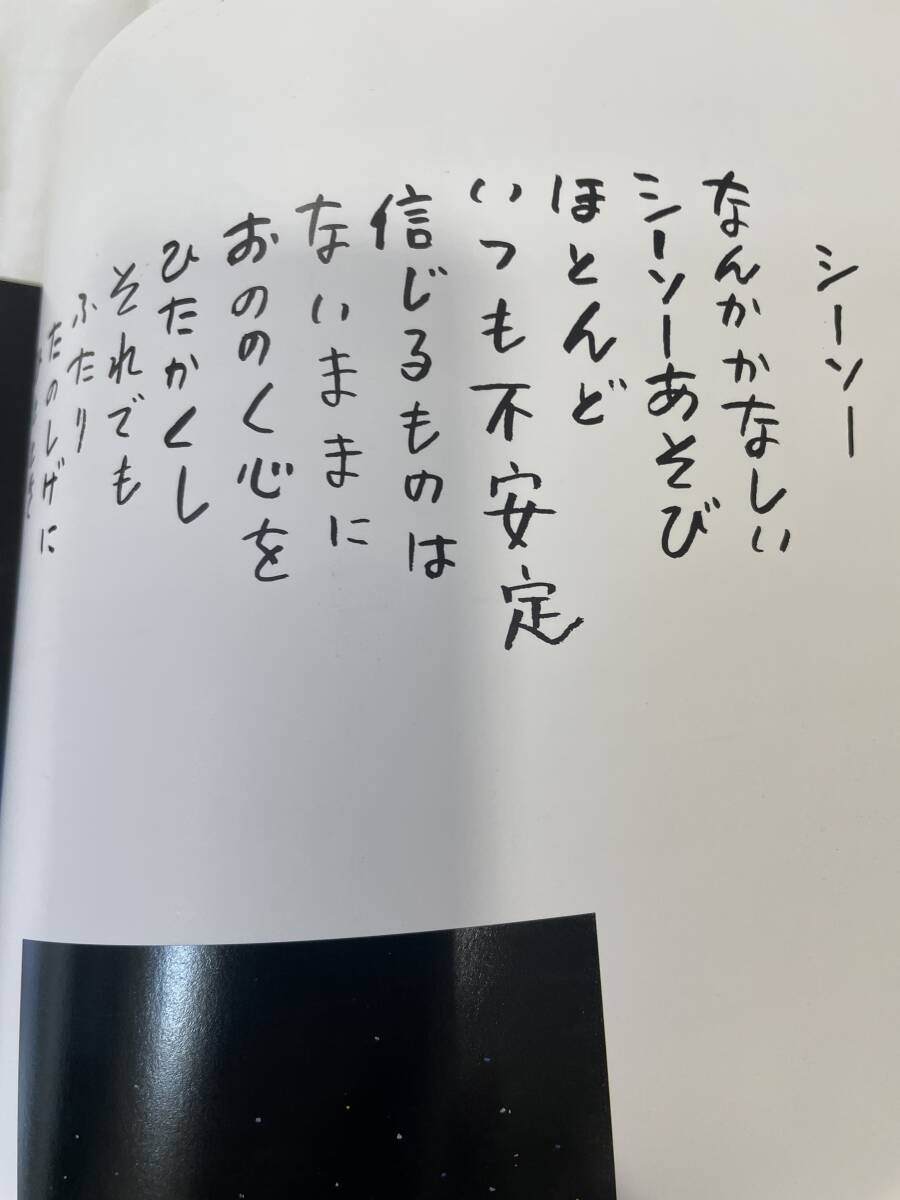 シーソー
なんかかなしい
シーソーあそび
ほとんど
いつも不安定
信じるものは
ないままに
おののく心を
ひたかくし
それでも
ふたり
たのしげに